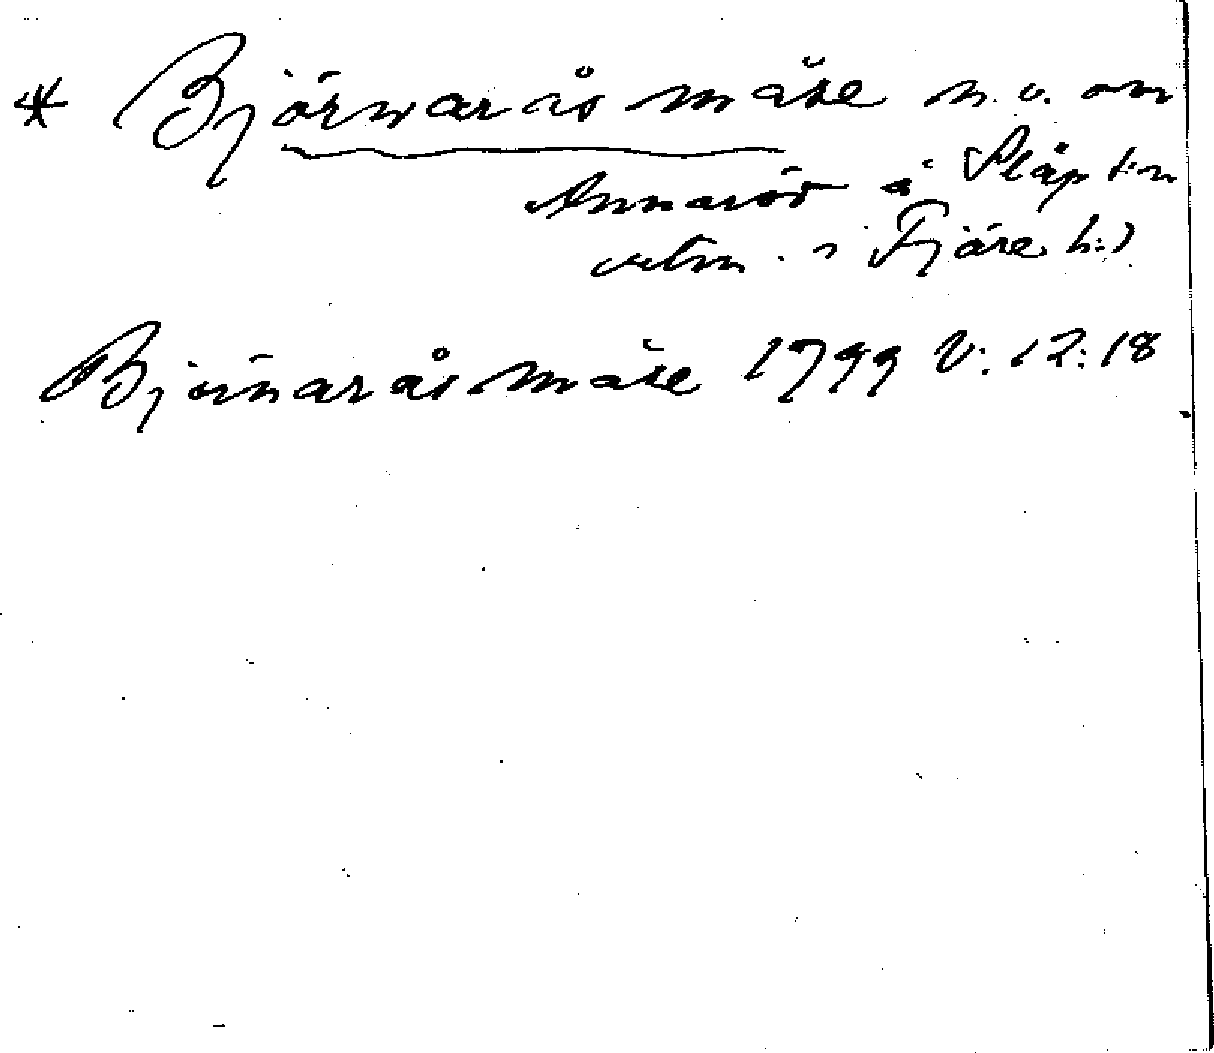 * Björnaråsmåse n. v. om
Annaröd å Släps s:n
i Fjäre h:d
Björnaråsmåse 1799 V: 12:18